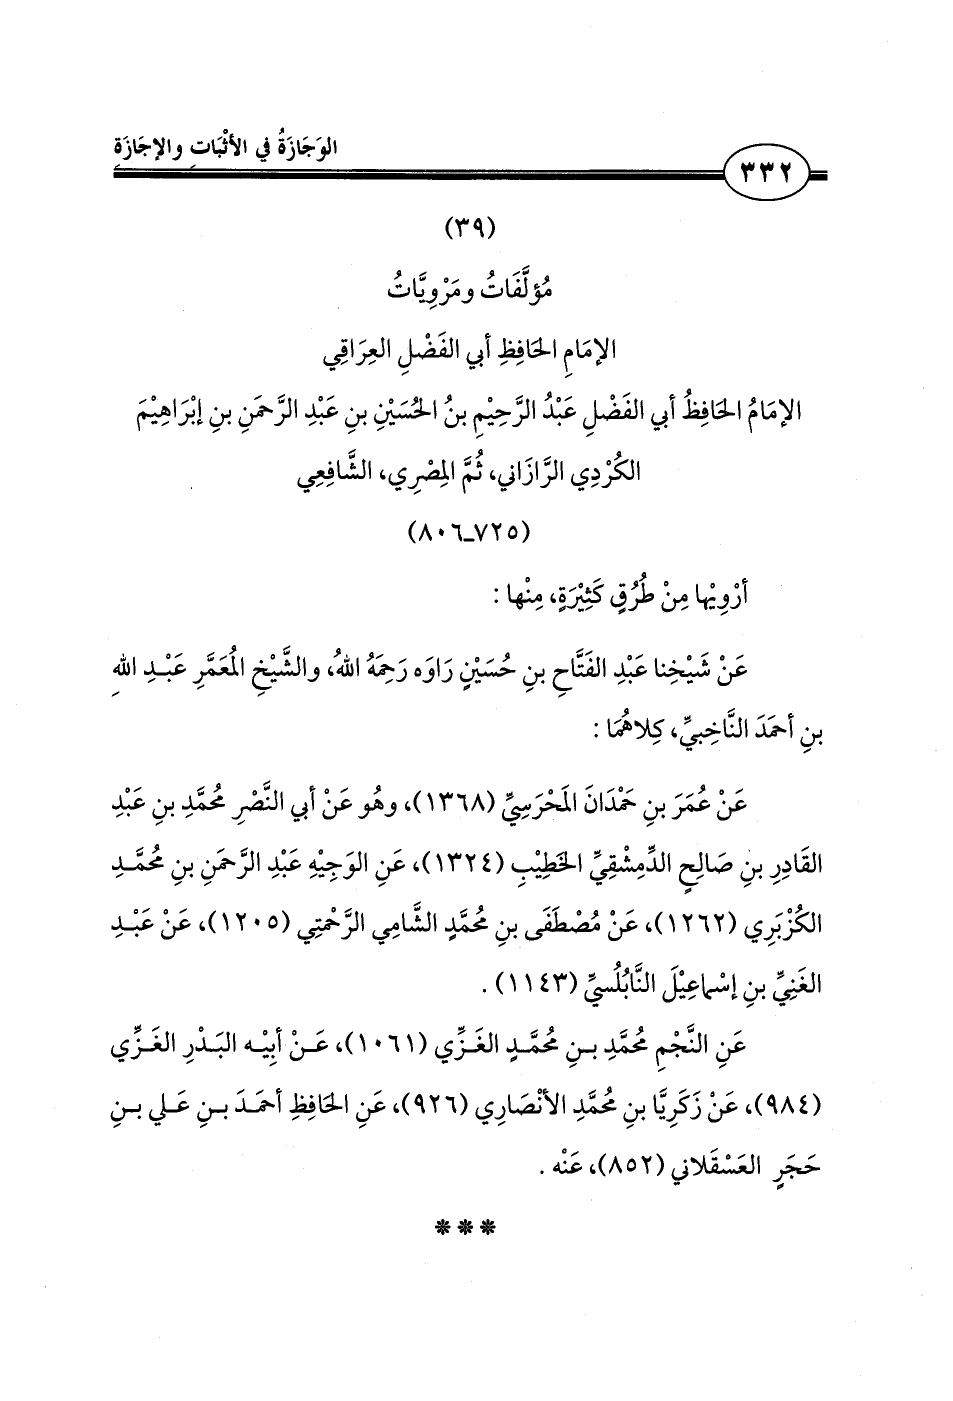 الوَجَازَةُ في الأثْبَاتِ والإجَازَةِ
٣٣٢
(٣٩)
مُؤلَّفَاتُ ومَرْوِيَّاتُ
الإمَامِ الحَافِظِ أبي الفَضْلِ العِرَاقِي
الإمَامُ الحَافِظُ أبي الفَضْلِ عَبْدُ الرَّحِيْمِ بنُ الحُسَيْنِ بنِ عَبْدِ الرَّحمَنِ بنِ إبْرَاهِيْمَ
الكُرْدِي الرَّازَاني، ثُمَّ المِصْرِي، الشَّافِعِي
(٧٢٥ـ٨٠٦)
أرْوِيْها مِنْ طُرُقٍ كَثِيْرَةٍ، مِنْها :
عَنْ شَيْخِنا عَبْدِ الفَتَّاحِ بنِ حُسَيْنٍ رَاوَه رَحِمَهُ اللهُ، والشَّيْخِ المُعَمَّرِ عَبْـدِ اللهِ
بنِ أحمَدَ النَّاخِبيِّ، كِلاهُمَا :
عَنْ عُمَرَ بنِ حَمْدَانَ المَحْرَسِيِّ (١٣٦٨)، وهُو عَنْ أبي النَّصْرِ مُحمَّدِ بنِ عَبْدِ
القَادِرِ بنِ صَالِحٍ الدِّمشْقِيِّ الخَطِيْبِ (١٣٢٤)، عَنِ الوَجِيْهِ عَبْدِ الرَّحمَنِ بنِ مُحمَّـدٍ
الكُزْبَرِي (١٢٦٢)، عَنْ مُصْطَفَى بنِ مُحمَّدٍ الشَّامِي الرَّحْمتِي (١٢٠٥)، عَنْ عَبْـدِ
الغَنِيِّ بنِ إسْماعِيْلَ النَّابُلُسيِّ (١١٤٣) .
عَنِ النَّجْمِ مُحمَّدِ بـنِ مُحمَّـدٍ الغَـزِّي (١٠٦١)، عَـنْ أبِيْـه البَـدْرِ الغَـزِّي
(٩٨٤)، عَنْ زَكَرِيَّا بنِ مُحمَّدٍ الأنْصَارِي (٩٢٦)، عَنِ الحَافِظِ أحمَـدَ بـنِ عَـلي بـنِ
حَجَرٍ العَسْقَلاني (٨٥٢)، عَنْه .
***